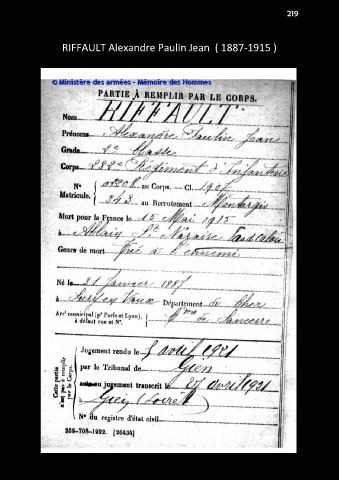 219
RIFFAULT Alexandre Paulin Jean ( 1887-1915 )
© Ministère des armées - Mémoire des Hommes
PARTIE À REMPLIR PAR LE CORPS.
Nom RIFFAULT
Prénoms Alexandre Paulin Jean
Grade 2e Classe
Corps 282e Régiment d'Infanterie
N° 01208 au Corps. — Cl. 1907
Matricule. 343 au Recrutement Montargis
Mort pour la France le 15 Mai 1915
à Ablain St Nazaire Pas de Calais
Genre de mort Tué à l'ennemi
Né le 31 Janvier 1887
à Sury en Vaux Département de Cher
Arr' municipal (p' Paris et Lyon),
à défaut rue et N°. de Sancerre
Cette partie n'est pas à remplir par le Corps.
Jugement rendu le 5 avril 1921
par le Tribunal de Gien
acte ou jugement transcrit le 27 avril 1921
à Gien (Loiret)
N° du registre d'état civil
269-708-1922. [26434]